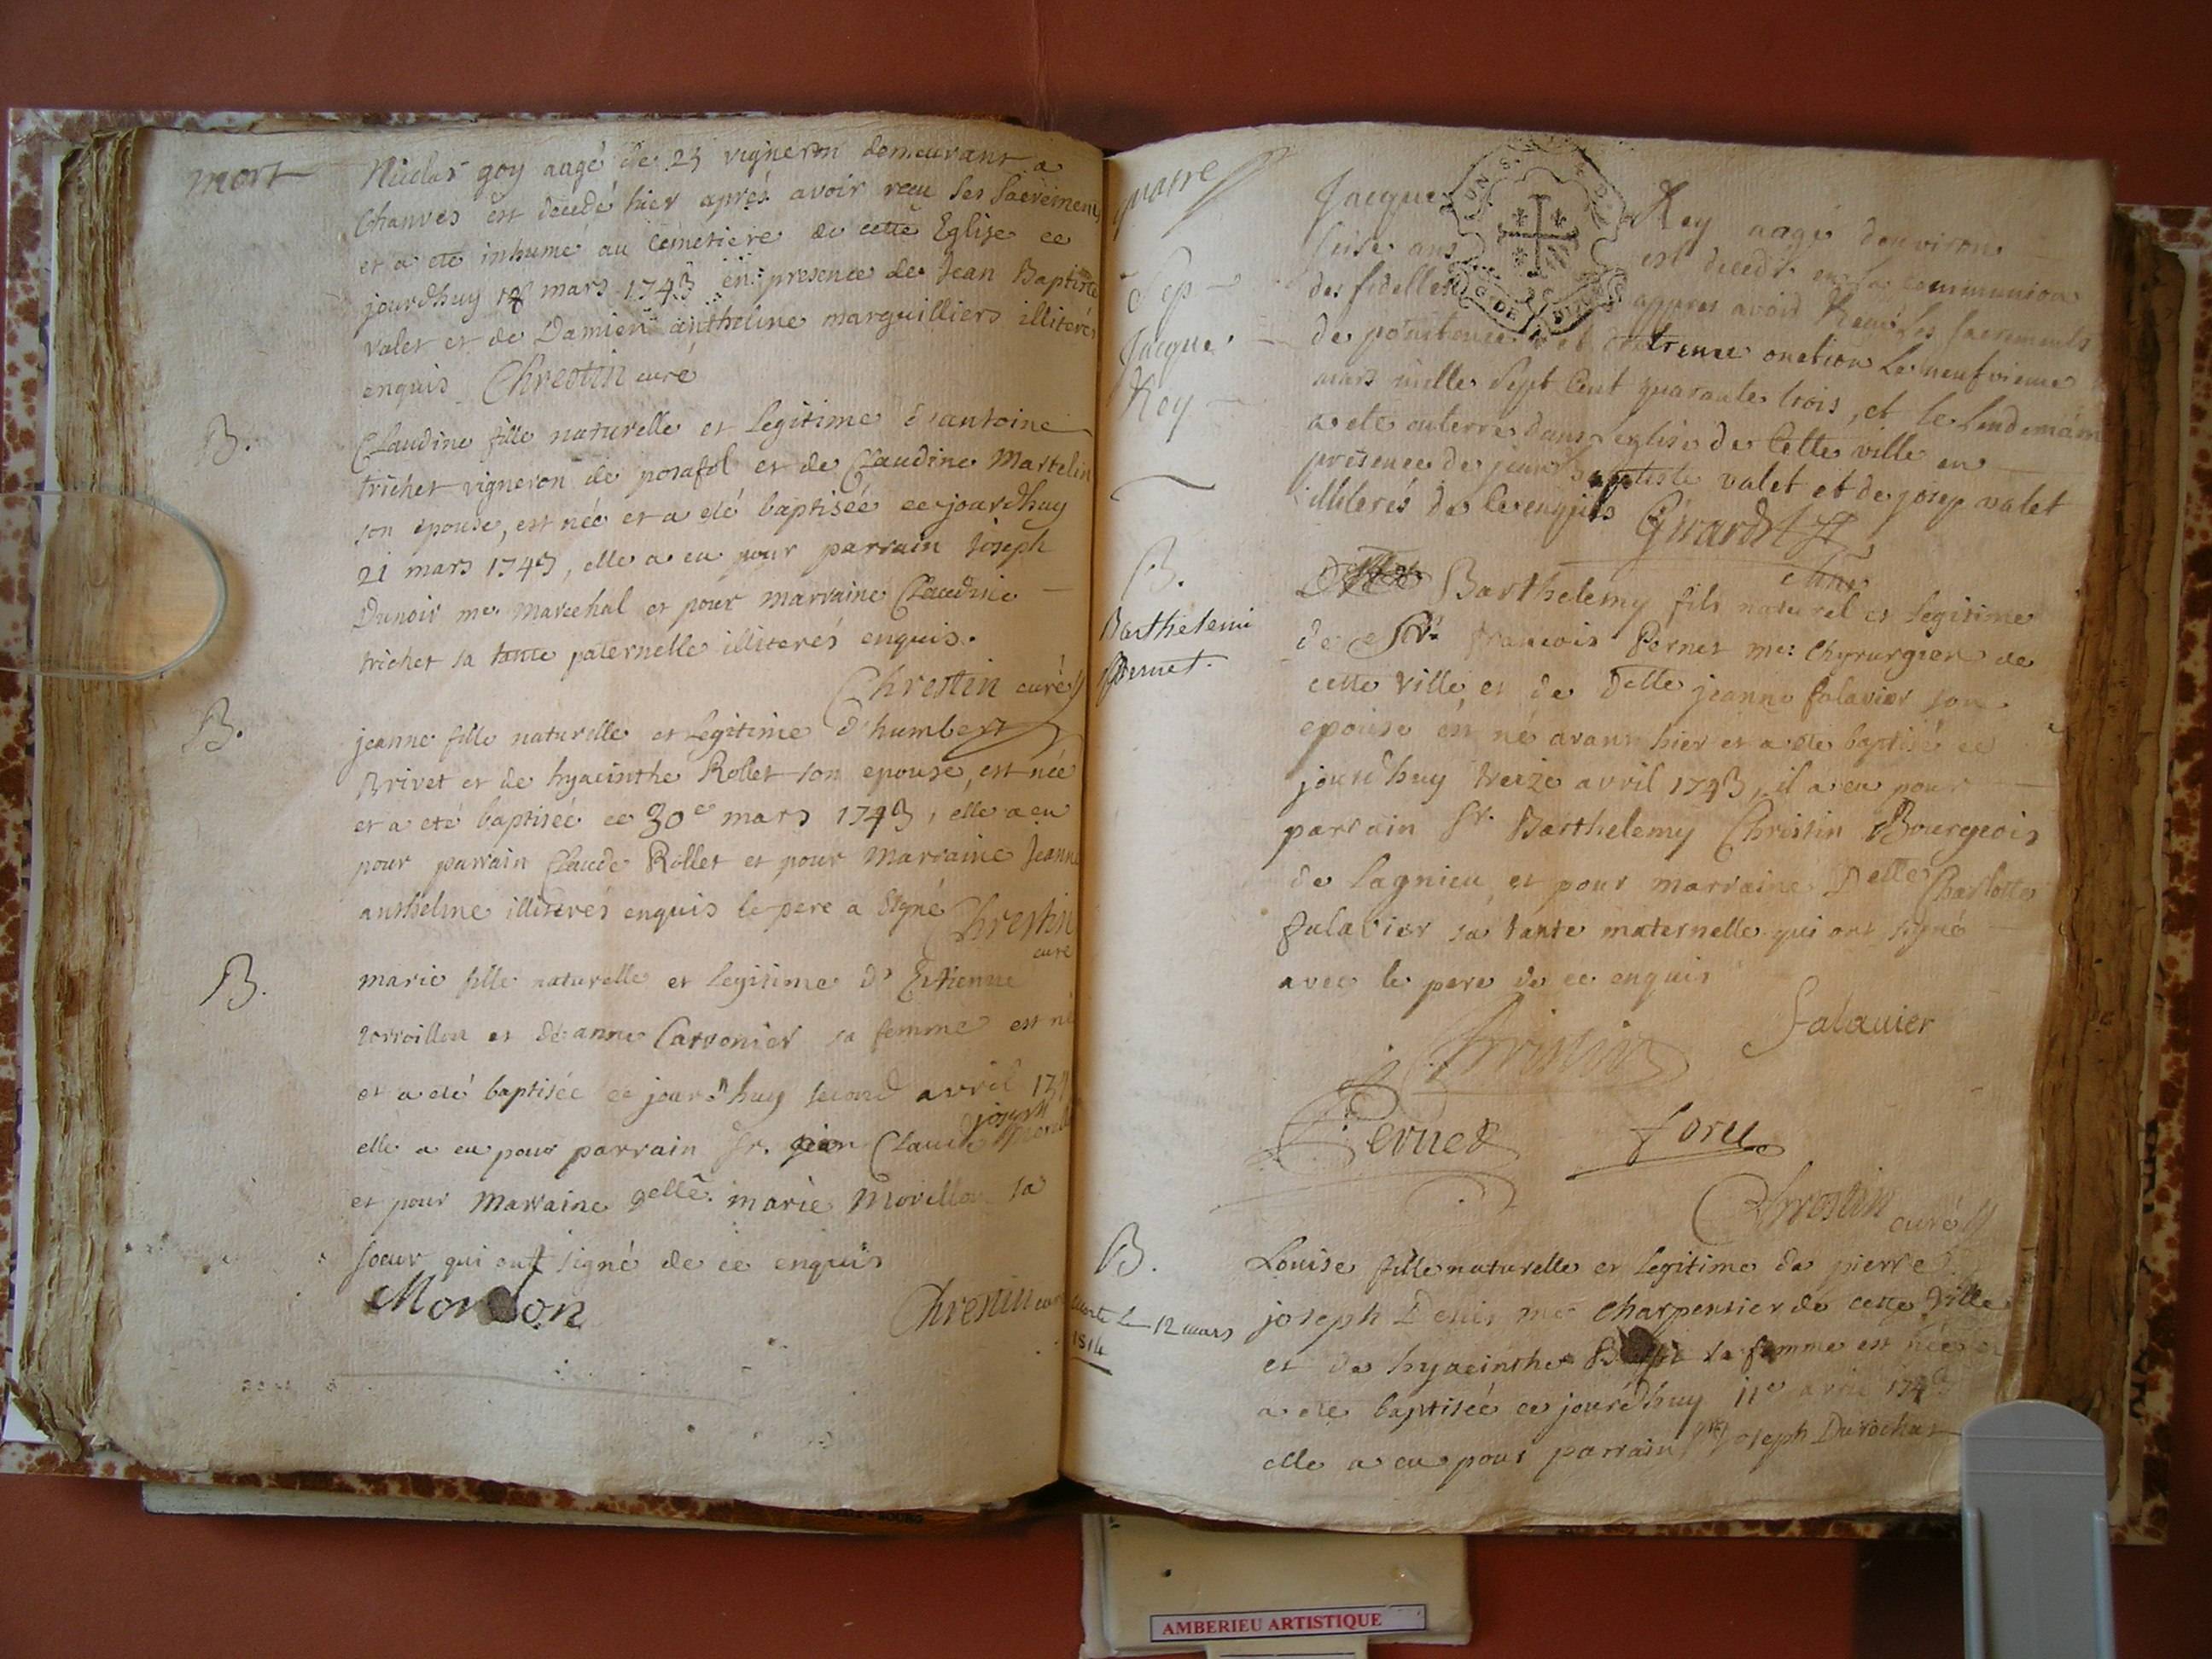 mort
Nicolas goy aagé de 25 vigneron demeurant a
Chanves est decedé hier aprés avoir recu les Sacremens
et a eté inhumé au Cemetiere de cette Eglise ce
jourdhuy 18 mars 1743 en presence de Jean Baptiste
valet et de Damien antheline marguilliers illiterés
enquis Chrestin curé
B.
Claudine fille naturelle et legitime d'antoine
trichet vigneron de posafol et de Claudine Martelin
son epouse, est née et a eté baptisée ce jourdhuy
21 mars 1743, elle a eu pour parrain Joseph
Dunoir me. Marechal et pour marraine Claudine
trichet sa tante paternelle illiterés enquis.
Chrestin curé
B.
jeanne fille naturelle et legitime d'humbert
Brivet et de hyacinthe Rollet son epouse, est née
et a eté baptisée ce 30e mars 1743, elle a eu
pour parrain Claude Rollet et pour Marraine Jeanne
anthelme illiterés enquis le pere a signé Chrestin
curé
B.
marie fille naturelle et legitime d'Estienne
et de anne Carronier sa femme est né
et a eté baptisée ce jourd'huy second avril 174
joseph
elle a eu pour parrain Sr. Claude
et pour Marraine Delle. marie Morellon sa
soeur qui ont signé de ce enquis
Morellon
Chrestin curé
quatre
Sep
Jacque
Rey
Jacque Rey aagé denviron
seise ans est decedé en la communion
des fidelles appres avoir Receu les sacrements
de penitence et extreme onction Le neufvieme
mars mille Sept Cent quarante trois, et le lendemain
a eté enterre dans leglise de Cette ville en
presence de jean baptiste valet et de josep valet
illiterés de ce enquis Girardet
B.
Barthelemi
Pernet.
Barthelemy fils naturel et legitime
de Sr. francois Pernet me: Chyrurgien de
cette ville et de Delle jeanne falavier son
epouse est né avant hier et a eté baptisé ce
jourdhuy treize avril 1743, il a eu pour
parrain Sr. Barthelemy Christin Bourgeois
de lagnieu et pour marraine Delle Charlotte
falavier sa tante maternelle qui ont signé
avec le pere de ce enquis
Christin
falauier
Pernet
foru
Chrestin curé
B.
morte le 12 mars
1814
Louise fille naturelle et legitime de pierre
joseph Denis me charpentier de cette ville
et de hyacinthe sa femme est née et
a eté baptisée ce jourd'huy 11e avril 1743
elle a eu pour parrain Joseph Durochat
AMBERIEU ARTISTIQUE